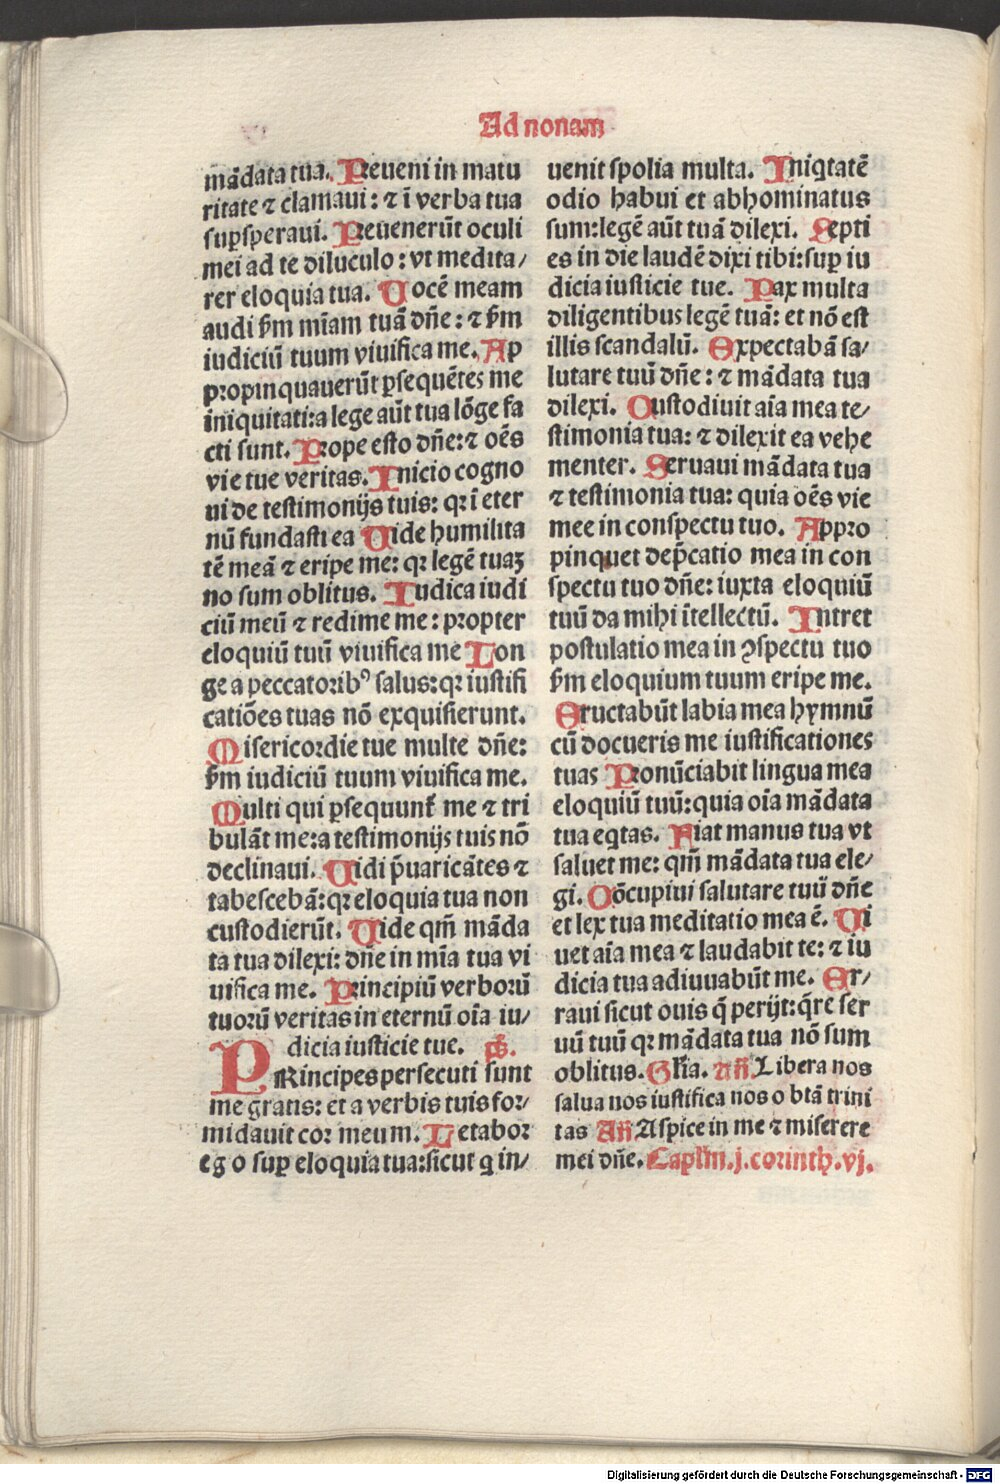 Ad nonam
mādata tua. Preueni in matu
ritate ⁊ clamaui: ⁊ ī verba tua
suꝑsperaui. Preuenerūt oculi
mei ad te diluculo: vt medita/
rer eloquia tua. Uocē meam
audi ẜm mīam tuā dñe: ⁊ ẜm
iudiciū tuum viuifica me. Ap
propinquauerūt ꝑsequētes me
iniquitati: a lege aūt tua lōge fa
cti sunt. Prope esto dñe: ⁊ oēs
vie tue veritas. Inicio cogno
ui de testimonijs tuis: qꝛ ī eter
nū fundasti ea Uide humilita
tē meā ⁊ eripe me: qꝛ legē tuaꝫ
no sum oblitus. Iudica iudi
ciū meū ⁊ redime me: propter
eloquiū tuū viuifica me Lon
ge a peccatoribꝰ salus: qꝛ iustifi
catiōes tuas nō exquisierunt.
Misericordie tue multe dñe:
ẜm iudiciū tuum viuifica me.
Multi qui ꝑsequunt᷑ me ⁊ tri
bulāt me: a testimonijs tuis nō
declinaui. Uidi p̄uaricātes ⁊
tabescebā: qꝛ eloquia tua non
custodierūt. Uide qm̄ māda
ta tua dilexi: dñe in mīa tua vi
uifica me. Principiū verborū
tuorū veritas in eternū oīa iu/
dicia iusticie tue. ps̄.
PRincipes persecuti sunt
me gratis: et a verbis tuis for/
midauit cor meum. Letabor
ego suꝑ eloquia tua: sicut q in/
uenit spolia multa. Iniqtatē
odio habui et abhominatus
sum: legē aūt tuā dilexi. Septi
es in die laudē dixi tibi: suꝑ iu
dicia iusticie tue. Pax multa
diligentibus legē tuā: et nō est
illis scandalū. Expectabā sa/
lutare tuū dñe: ⁊ mādata tua
dilexi. Custodiuit aīa mea te/
stimonia tua: ⁊ dilexit ea vehe
menter. Seruaui mādata tua
⁊ testimonia tua: quia oēs vie
mee in conspectu tuo. Appro
pinquet dep̄catio mea in con
spectu tuo dñe: iuxta eloquiū
tuū da mihi ītellectū. Intret
postulatio mea in ꝯspectu tuo
ẜm eloquium tuum eripe me.
Eructabūt labia mea hymnū
cū docueris me iustificationes
tuas Pronūciabit lingua mea
eloquiū tuū: quia oīa mādata
tua eqtas. Fiat manus tua vt
saluet me: qm̄ mādata tua ele/
gi. Cōcupiui salutare tuū dñe
et lex tua meditatio mea ē. Ui
uet aīa mea ⁊ laudabit te: ⁊ iu
dicia tua adiuuabūt me. Er/
raui sicut ouis q̄ perijt: q̄re ser
uū tuū qꝛ mādata tua nō sum
oblitus. Gl'ia. Añ Libera nos
salua nos iustifica nos o btā trini
tas Añ Aspice in me ⁊ miserere
mei dñe. Capl'm. j. corinth. vj.
Digitalisierung gefördert durch die Deutsche Forschungsgemeinschaft - DFG